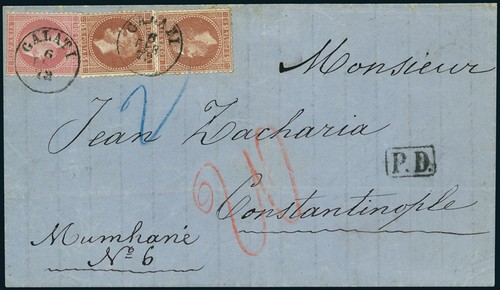 GALATI
6
72
GALATI
6
Monsieur
Jean Zacharia
P.D.
Constantinople
Mumhané
No 6